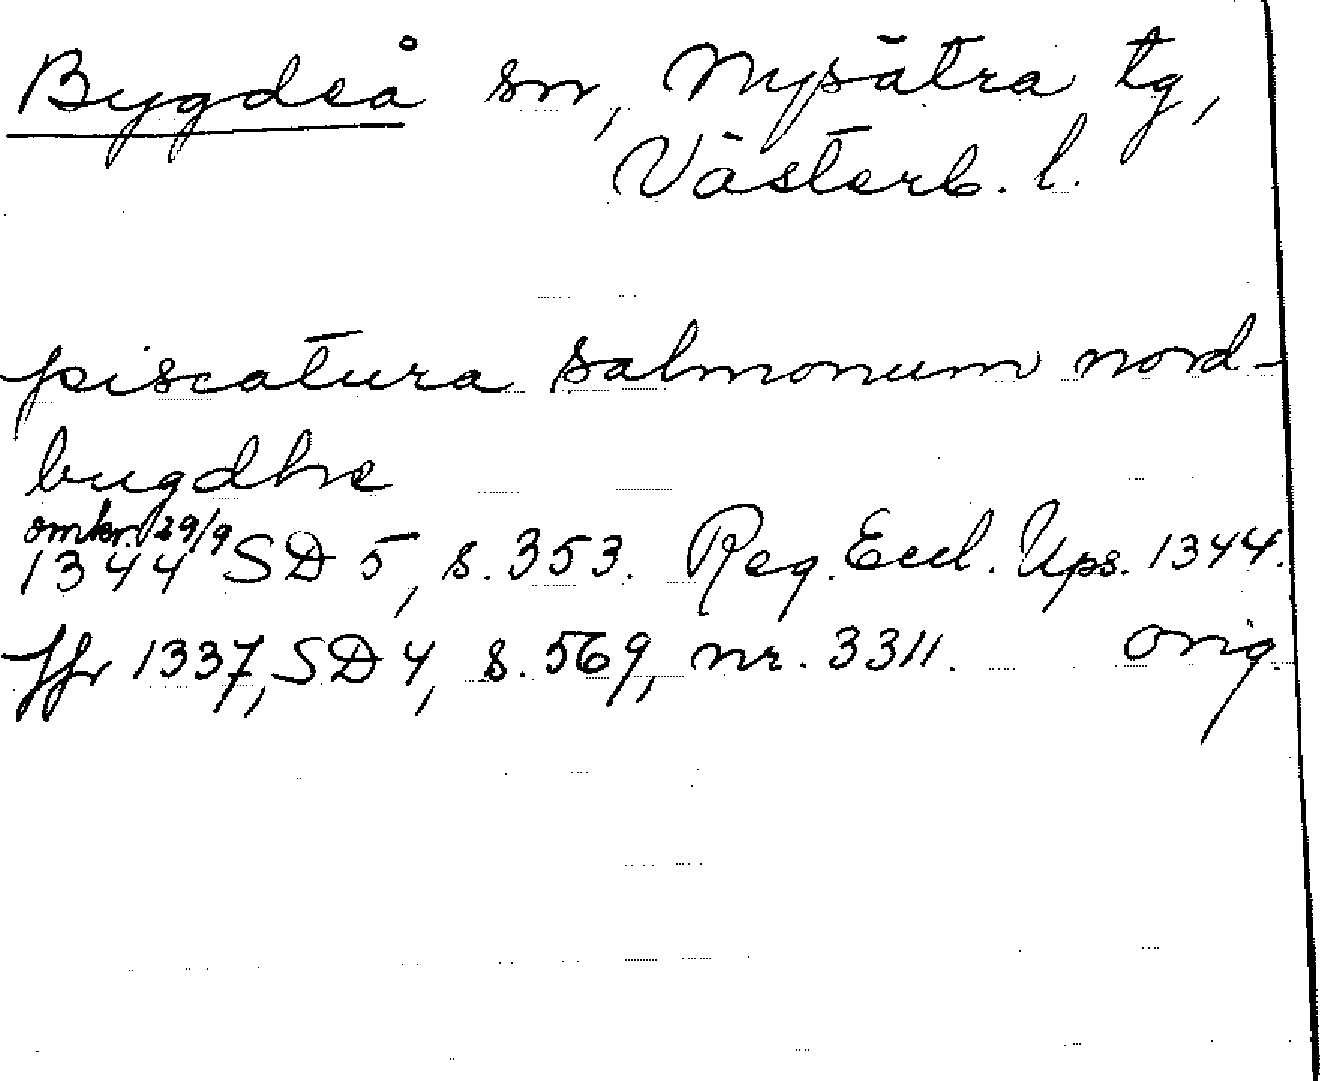 Bygdeå sn, Nysätra tg,
Västerb. l.
piscatura salmonum nord-
bugdhe
omkr. 29/9
1344 SD 5, s. 353. Reg. Eccl. Ups. 1344.
Jfr 1337, SD 4, s. 569, nr. 3311. orig.